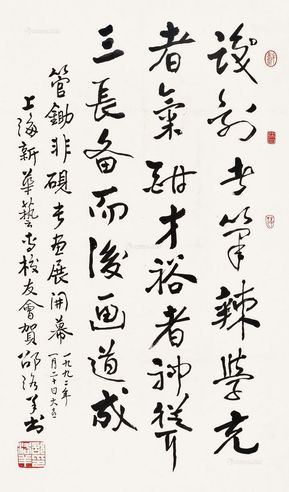 識到者筆辣學充
者氣酣才裕者神從
三長备而後画道成
管鋤非硯者画展開幕
一九九二年
一月二十日大吉
上海新華藝專校友會賀 邵洛羊書